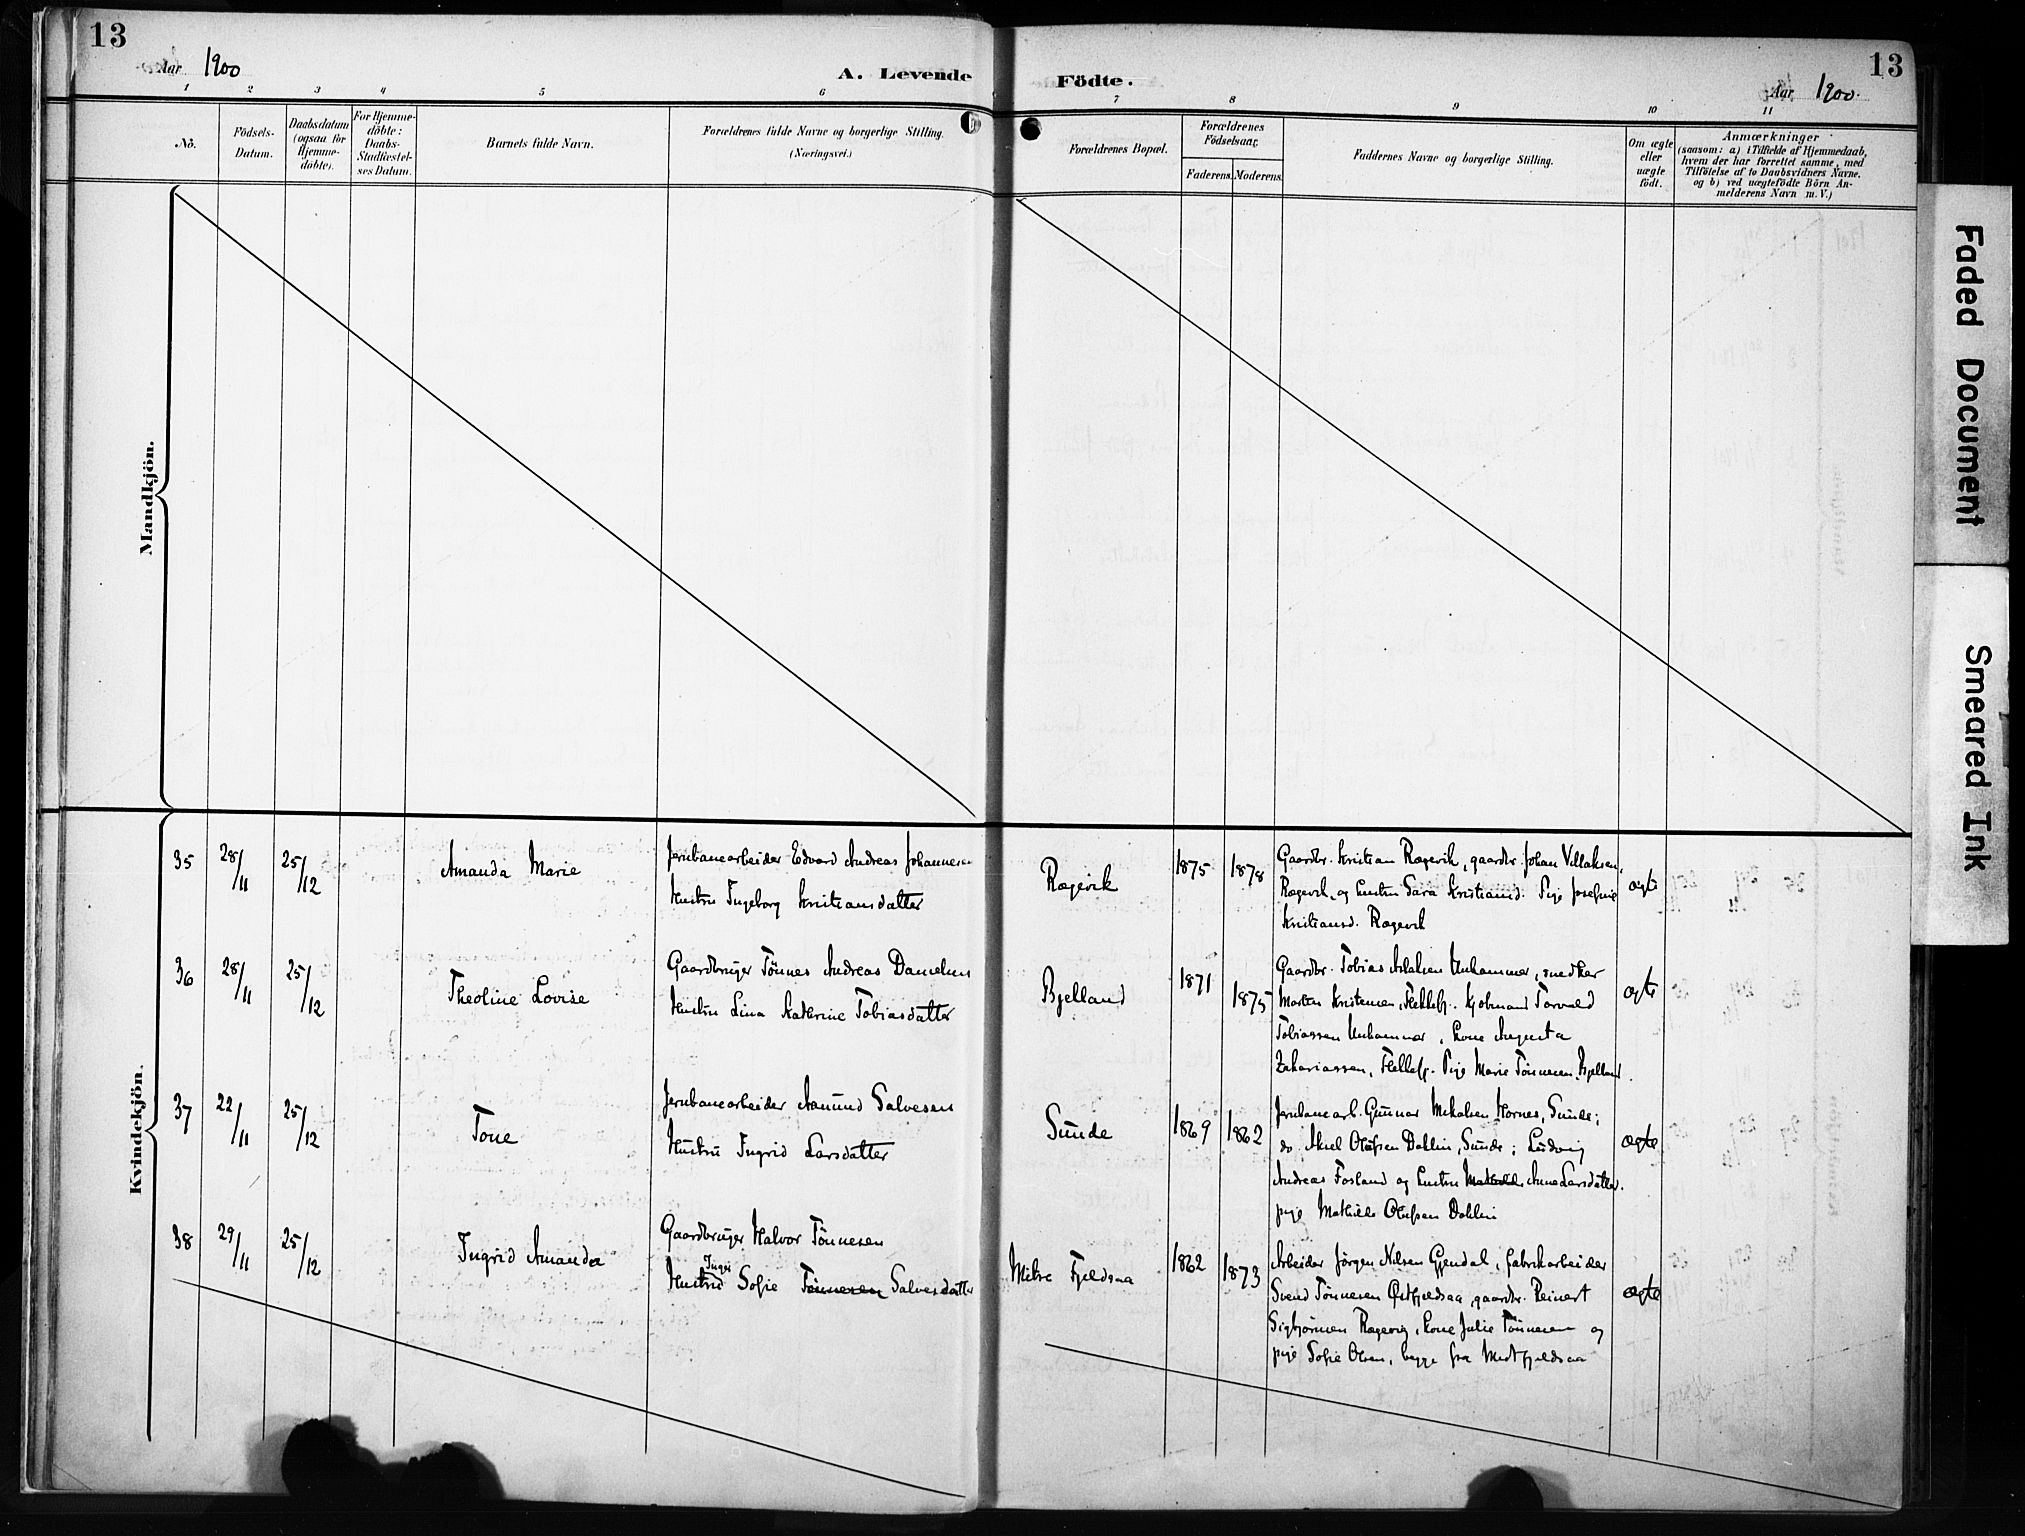 13
Aar 1900
A. Levende
Födte.
Aar 1900.
13
1 2 3 4 5 6 7 8 9 10 11
No.
Födsels-
Datum.
Daabsdatum
(ogsaa for
Hjemme-
döbte).
For Hjemme-
döbte:
Daabs-
Stadfæstel-
ses Datum.
Barnets fulde Navn.
Forældrenes fulde Navne og borgerlige Stilling.
(Næringsvei.)
Forældrenes Bopæl.
Forældrenes
Födselsaar.
Faderens. Moderens.
Faddernes Navne og borgerlige Stilling.
Om ægte
eller
uægte
födt.
Anmærkninger
(saasom: a) i Tilfælde af Hjemmedaab,
hvem der har forrettet samme, med
Tilföielse af to Daabsvidners Navne.
og b) ved uægtefödte Börn An-
melderens Navn m.V.)
Mandkjön.
Kvindekjön.
35
28/11
25/12
Amanda Marie
Jernbanearbeider Edvard Andreas Johannesen
Hustru Ingeborg Kristiansdatter
Røgevik
1875
1878
Gaardbr. Kristian Røgevik, gaardbr. Johan Villaksen,
Røgevik, og hustru Sara Kristiansd. Pige Josefine
Kristiansd. Røgevik
ægte
36
28/11
25/12
Theoline Lovise
Gaardbruger Tönnes Andreas Danielsen
Hustru Lina Katherine Tobiasdatter
Bjelland
1871
1875
Gaardbr. Tobias Aslaksen Unhammer, snedker
Morten Kristensen, Flekkefj. Kjøbmand Torvald
Tobiassen Unhammer, kone Augusta
Zakariassen, Flekkefj. Pige Marie Tönnesen, Bjelland.
ægte
37
22/11
25/12
Tone
Jernbanearbeider Aamund Salvesen
Hustru Ingrid Larsdatter
Sunde
1869
1862
Jernbanearb. Gunnar Mikalsen Hornes, Sunde;
do. Axel Olufsen Dahlin, Sunde; Ludvig
Andreas Fosland og hustru Mathilde Anne Larsdatter.
pige Mathilde Olufsen Dahlin
ægte
38
29/11
25/12
Ingrid Amanda
Gaardbruger Halvor Tönnesen
Inger
Hustru Sofie Tönnesen Salvesdatter
Mitre Fjeldsaa
1862
1873
Arbeider Jörgen Nilsen Gjendal, fabrikarbeider
Svend Tönnesen Østfjeldsaa, gaardbr. Reinert
Sigbjörnsen Røgevig, kone Julie Tönnesen og
pige Sofie Olsen, begge fra Midtfjeldsaa
ægte
Faded Document
Smeared Ink